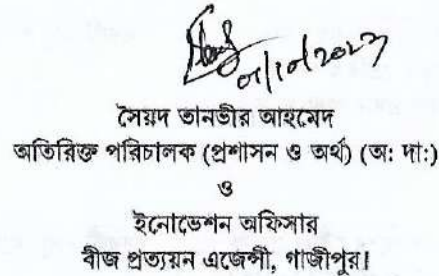 ০১/১০/২০২৩
সৈয়দ তানভীর আহমেদ
অতিরিক্ত পরিচালক (প্রশাসন ও অর্থ) (অ: দা:)
ও
ইনোভেশন অফিসার
বীজ প্রত্যয়ন এজেন্সী, গাজীপুর।